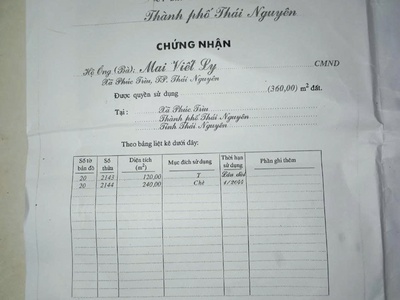 Thành phố Thái Nguyên
CHỨNG NHẬN
Hộ Ông (Bà): Mai Viết Ly CMND
Xã Phúc Trìu, TP. Thái Nguyên
Được quyền sử dụng (360,00) m² đất.
Tại : Xã Phúc Trìu
Thành phố Thái Nguyên
Tỉnh Thái Nguyên
Theo bảng liệt kê dưới đây:
Số tờ bản đồ Số thửa Diện tích (m²) Mục đích sử dụng Thời hạn sử dụng Phần ghi thêm
20 2143 120,00 T Lâu dài
20 2144 240,00 Chè